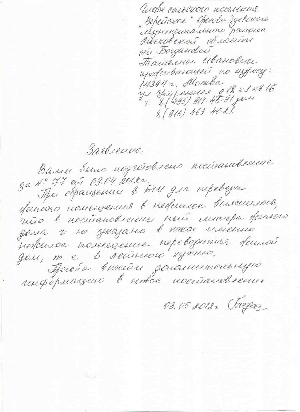 Главе сельского поселения
"Верейское" Орехово-Зуевского
Муниципального района
Московской области
от Богдановой
Татьяны Ивановны
проживающей по адресу:
г. Москва

Заявление.
Вами было подготовлено постановление
за № 77 от 09.04.2018г.
При обращении в БТИ для перевода
жилого помещения в нежилое выяснилось,
что в постановлении нет литера жилого
дома и не указано в какое именно
нежилое помещение переводится жилой
дом, т.е. в летнюю кухню.
Прошу внести дополнительную
информацию в новое постановление
13.05.2018г.